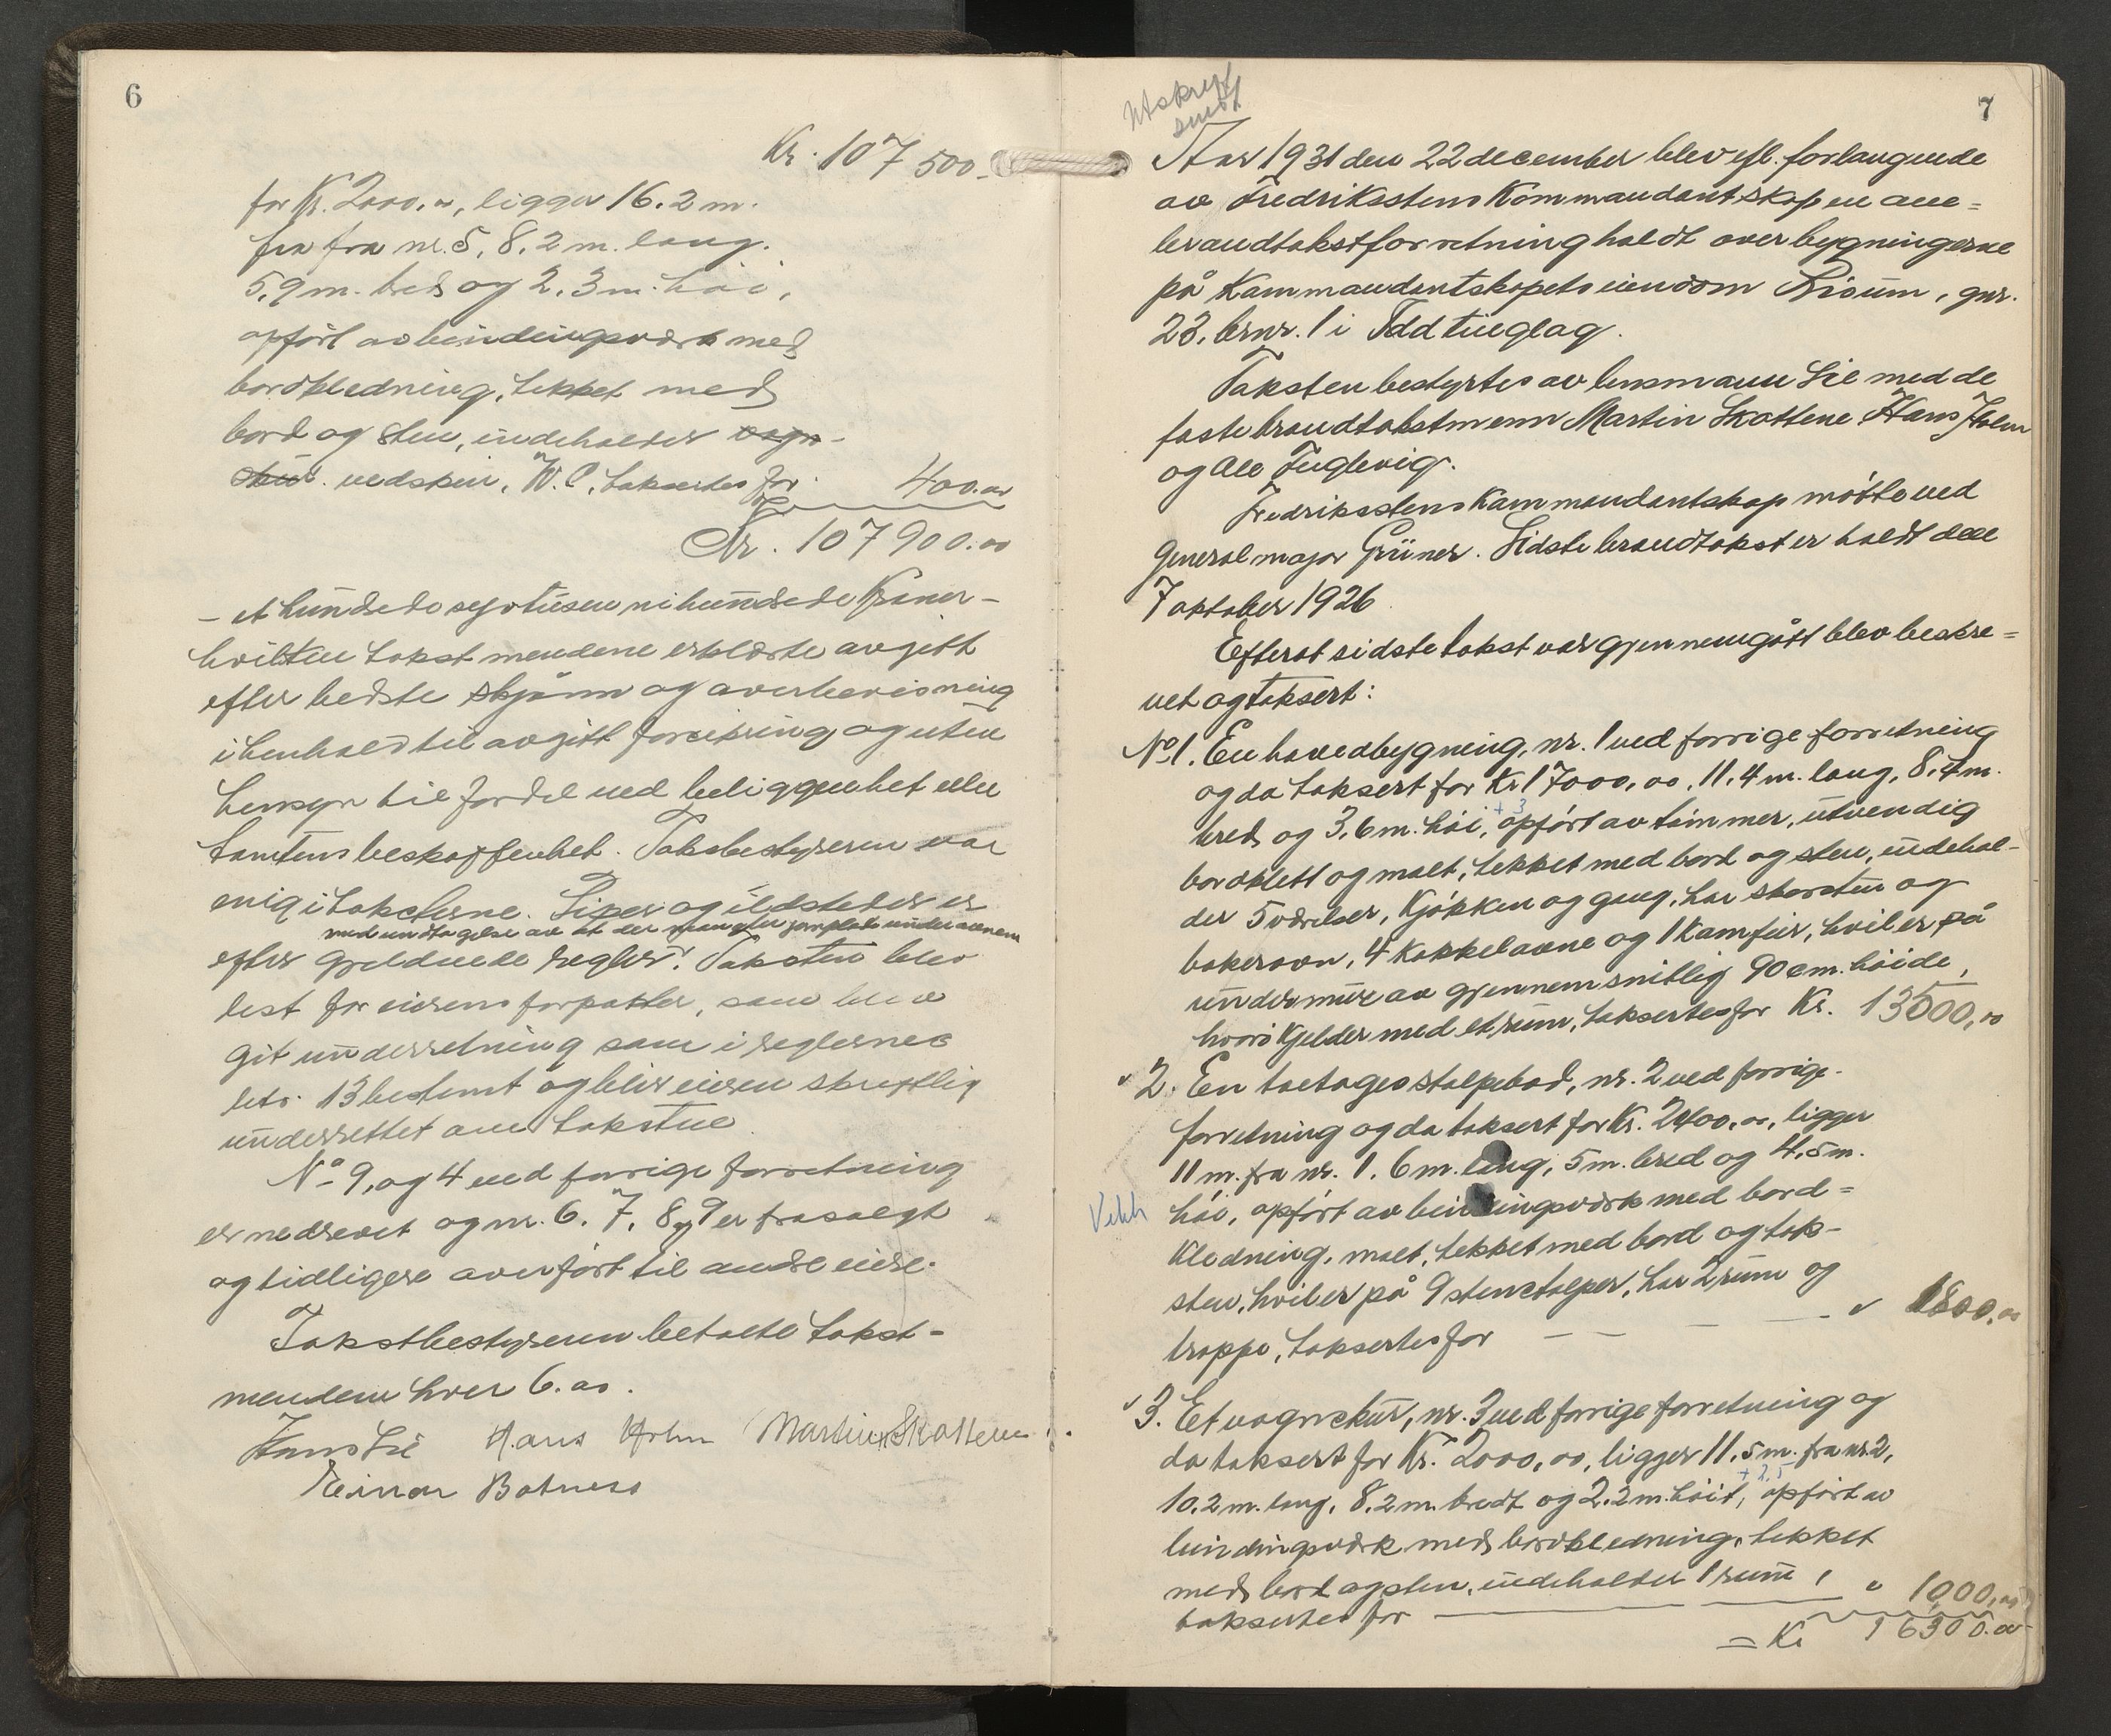 6
Kr. 107 500.-
for Kr. 2000.00, ligger 16.2 m.
fra fra nr. 5, 8.2 m. lang.
5.9 m. bred og 2.3 m. høi,
opført av bindingsverk med
bordkledning, tekket med
bord og sten, indeholder vogn-
skur. vedskur, W.C, takseres for 400.00
Kr. 107 900.00
- et hundrede syvtusen nihundrede Kroner -
hvilken takst mendene erklærte avgitt
efter bedste skjønn og overbevisning
i henhold til avgitt forsikring og uten
hensyn til fordel ved beliggenhet eller
tomtens beskaffenhet. Takstbestyreren var
enig i taksterne. Piper og ildsteder er
med undtagelse av at der mangler jernplate under ovnene
efter gjeldende regler. Taksten blev
lest for eierens forpakter, som blev
git underretning som i reglernes
litr. 13 bestemt og blir eieren skriftlig
underrettet om taksten.
No 9, og 4 ved forrige forretning
er nedrevet og nr. 6. 7, 8 og 9 er frasolgt
og tidligere overført til andre eiere.
Takstbestyreren betalte takst-
mendene hver 6.00.
Hans Lie Hans Holm Martin Skottene
Einar Botness
7
Utskrift
sendt
Aar 1931 den 22 december blev efl. forlangende
av Fredrikstens Kommandantskap en om=
brandtakstforretning holdt over bygningerne
på Kommandantskapets eiendom Risum, gnr.
23, brnr. 1 i Idd tinglag.
Taksten bestyrtes av lensmann Lie med de
faste brandtakstmenn Martin Skottene Hans Holm
og Ole Fuglevig.
Fredrikstens Kommandantskap møtte ved
Generalmajor Grüner. Sidste brandtakst er holdt den
7 oktober 1926
Efterat sidste takst var gjennemgått blev beskre=
vet og taksert:
No 1. En hovedbygning, nr. 1 ved forrige forretning
og da taksert for Kr 17000,00, 11.4 m. lang, 8.4 m.
+ 3
bred og 3,6 m. høi, opført av tømmer, utvendig
bordklett og malt, tekket med bord og sten, indehol-
der 5 værelser, Kjøkken og gang, har skorsten og
bakerovn, 4 kakkelovne og 1 Komfur, hviler på
undermur av gjennemsnitlig 90 cm. høide,
hvori Kjelder med et rum, takseres for Kr. 13500,00
" 2. En toetages stolpebod, nr. 2 ved forrige
forretning og da taksert for Kr. 2400,00, ligger
11 m. fra nr. 1. 6 m. lang, 5 m. bred og 4,5 m.
Vekk
høi, opført av bindingsverk med bord=
kledning, malt, tekket med bord og tak-
sten, hviler på 9 stenstolper, har 2 rum og
trappe, takseres for " 1800.00
" 3. Et vognskur, nr. 3 ved forrige forretning og
da taksert for Kr. 2000,00, ligger 11.5 m. fra nr. 2,
+ 2,5
10.2 m. lang, 8.2 m. bredt og 2.2 m. høit, opført av
bindingsverk med bordkledning, tekket
med bord og sten, indeholder 1 rum,
takseres for " 1000,00
= Kr 16300.00